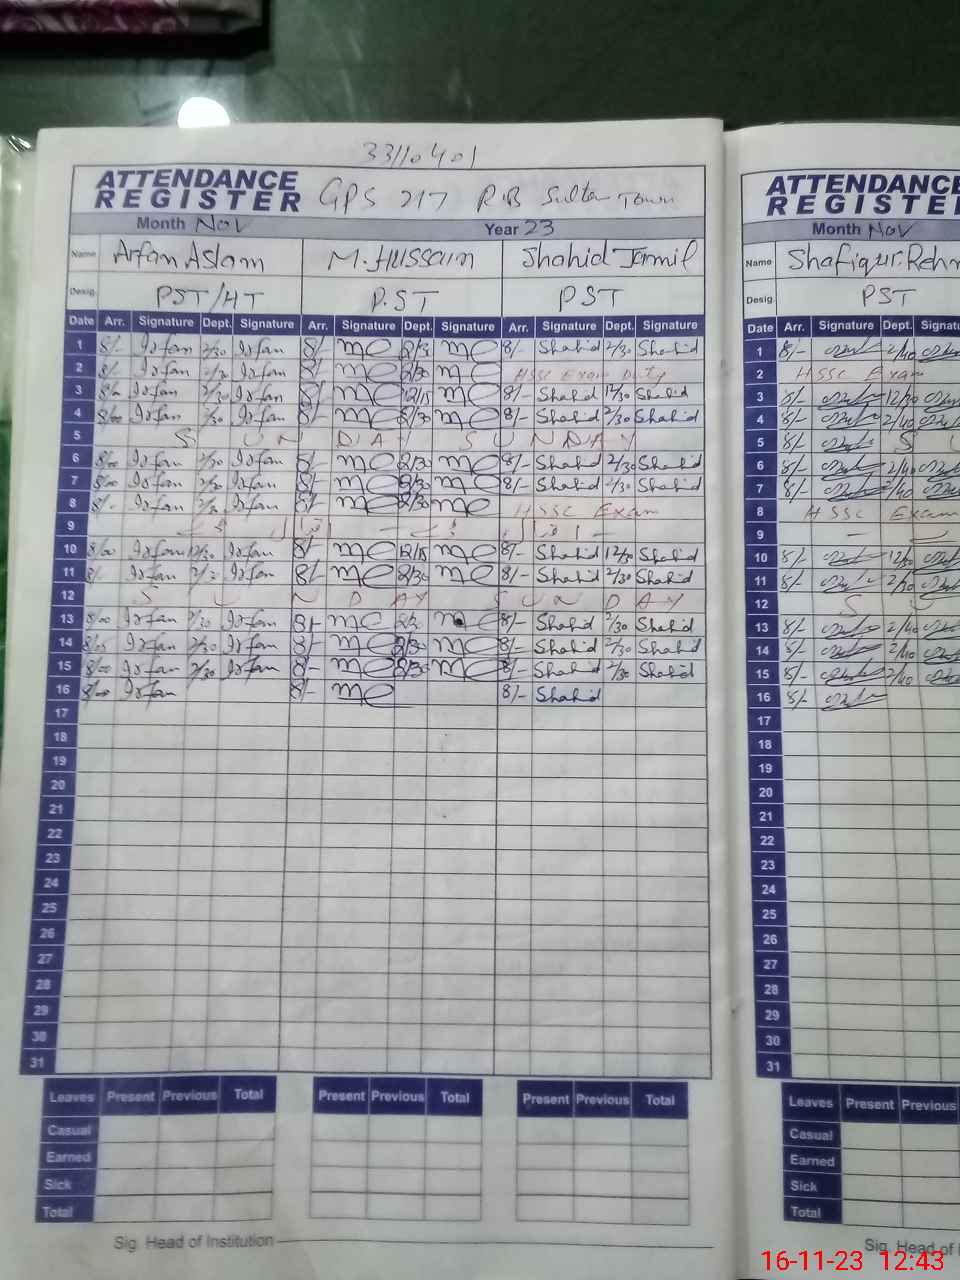 33110401
ATTENDANCE REGISTER GPS 217 RB Sultan Town
Month Nov Year 23
Name Arfan Aslam M. Hussain Shahid Jamil
Desig. PST/HT P.ST PST
Date Arr. Signature Dept. Signature Arr. Signature Dept. Signature Arr. Signature Dept. Signature
1 8/- Irfan 2/30 Irfan 8/- 2/30 8/- Shahid 2/30 Shahid
2 8/- Irfan 2/30 Irfan 8/- 2/30 HSSC Exam Duty
3 8/00 Irfan Irfan 8/- 12/15 8/- Shahid 12/30 Shahid
4 8/00 Irfan 2/30 Irfan 8/- 2/30 8/- Shahid 2/30 Shahid
5 SUNDAY SUNDAY
6 8/00 Irfan 2/30 Irfan 8/- 2/30 8/- Shahid 2/30 Shahid
7 8/00 Irfan 2/30 Irfan 8/- 2/30 8/- Shahid 2/30 Shahid
8 8/- Irfan 2/30 Irfan 8/- 2/30 HSSC Exam
9
10 8/00 Irfan 12/30 Irfan 8/- 12/15 8/- Shahid 12/30 Shahid
11 8/- Irfan 2/30 Irfan 8/- 2/30 8/- Shahid 2/30 Shahid
12 SUNDAY SUNDAY
13 8/00 Irfan 2/30 Irfan 8/- 2/30 8/- Shahid 2/30 Shahid
14 Irfan 2/30 Irfan 8/- 2/30 8/- Shahid 2/30 Shahid
15 8/00 Irfan 2/30 Irfan 8/- 2/30 8/- Shahid 2/30 Shahid
16 8/00 Irfan 8/- 8/- Shahid
17
18
19
20
21
22
23
24
25
26
27
28
29
30
31
Leaves Present Previous Total Present Previous Total Present Previous Total
Casual
Earned
Sick
Total
Sig. Head of Institution
ATTENDANCE
REGISTER
Month Nov
Name Shafiqur.
Desig. PST
Date Arr. Signature Dept.
1 8/- 2/40
2 HSSC Exam
3 8/- 12/30
4 8/- 2/40
5 8/- S U
6 8/- 2/40
7 8/- 2/40
8 HSSC Exam
9
10 8/- 12/30
11 8/- 2/30
12 S
13 8/- 2/40
14 8/- 2/40
15 8/- 2/40
16 8/-
17
18
19
20
21
22
23
24
25
26
27
28
29
30
31
Leaves Present Previous
Casual
Earned
Sick
Total
Sig. Head of
16-11-23 12:43